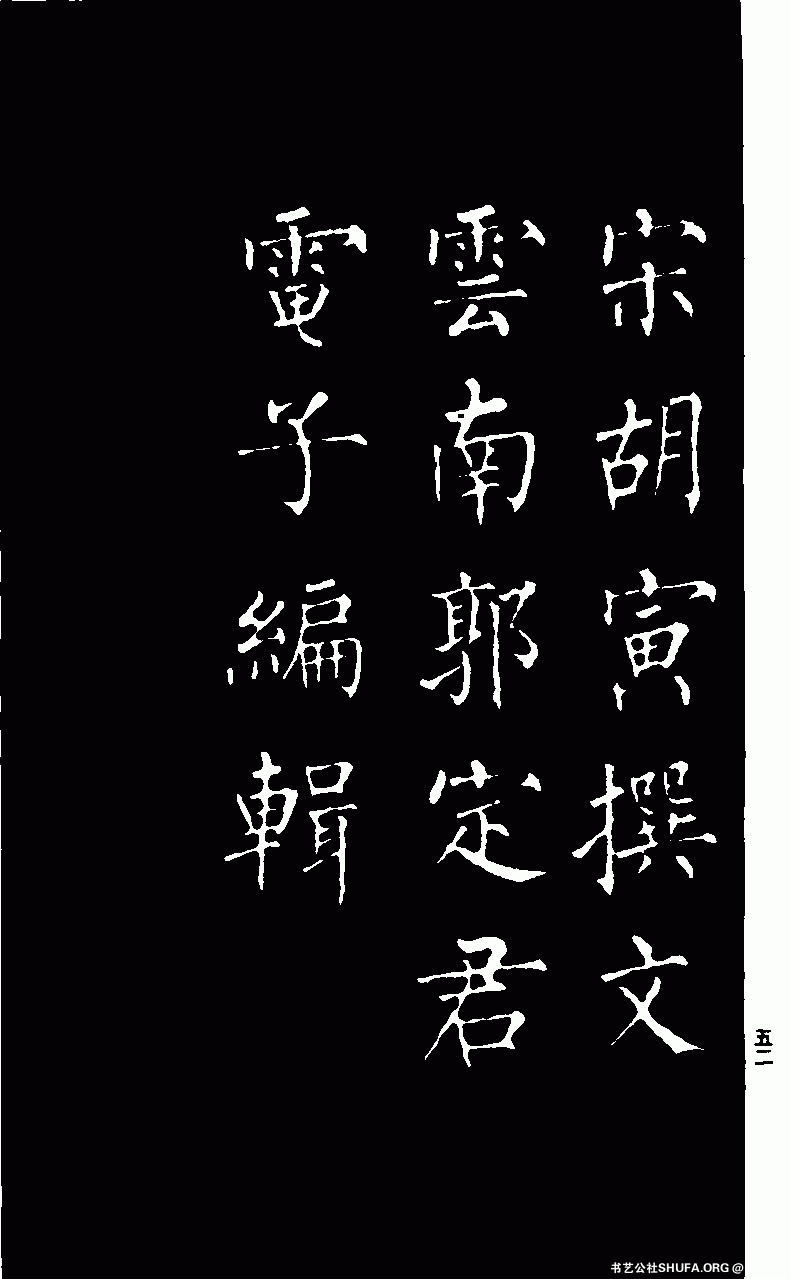 宋胡寅撰文
雲南郭定君
電子編輯
五二
书艺公社SHUFA.ORG @